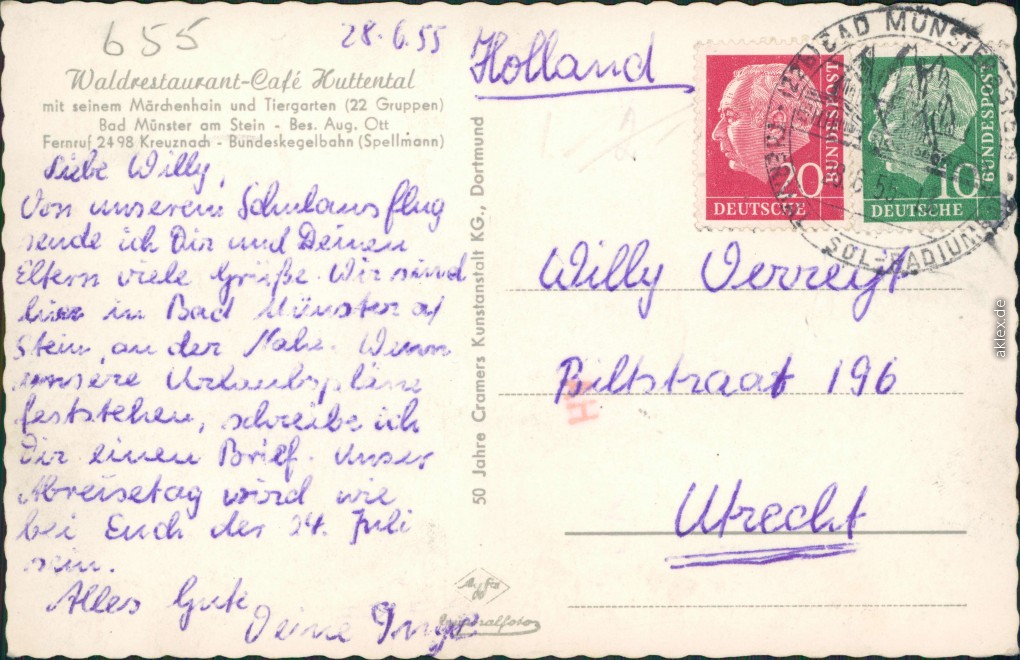 655
28.6.55
Waldrestaurant-Café Huttental
mit seinem Märchenhain und Tiergarten (22 Gruppen)
Bad Münster am Stein - Bes. Aug. Ott
Fernruf 2498 Kreuznach - Bundeskegelbahn (Spellmann)
Liebe Willy,
Von unserem Schulausflug
sende ich Dir und Deinen
Eltern viele Grüße. Wir sind
hier in Bad Münster a/
Stein, an der Nahe. Wenn
unsere Urlaubspläne
feststehen, schreibe ich
Dir einen Brief. Unser
Abreisetag wird wie
bei Euch der 24. Juli
sein.
Alles Gute
Deine Inge
50 Jahre Cramers Kunstanstalt KG., Dortmund
Holland
20
DEUTSCHE
BUNDESPOST
10
DEUTSCHE
BUNDESPOST
BAD MÜNSTER
SOL-RADIUM
Willy Verreyt
Biltstraat 196
Utrecht
aklex.de